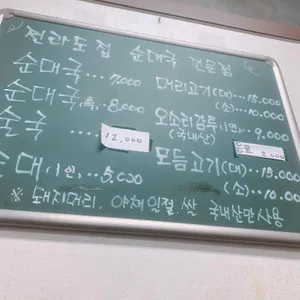 전라도집 순대국 전문점
순대국...7,000
순대국(특)..8,000
술국... 12,000
순대(1인)...5,000
머리고기(대)...15,000
(소)...10,000
오소리감투(1인)..9,000
(국내산)
2,000
모듬고기(대)...15,000
(소)...10,000
※ 돼지머리, 야채일절, 쌀 국내산만 사용